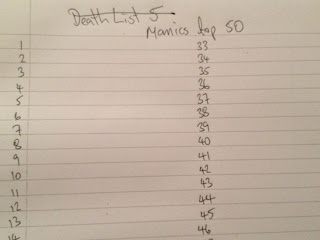 Death List 5
Manics top 50
1 33
2 34
3 35
4 36
5 37
6 38
7 39
8 40
9 41
10 42
11 43
12 44
13 45
14 46